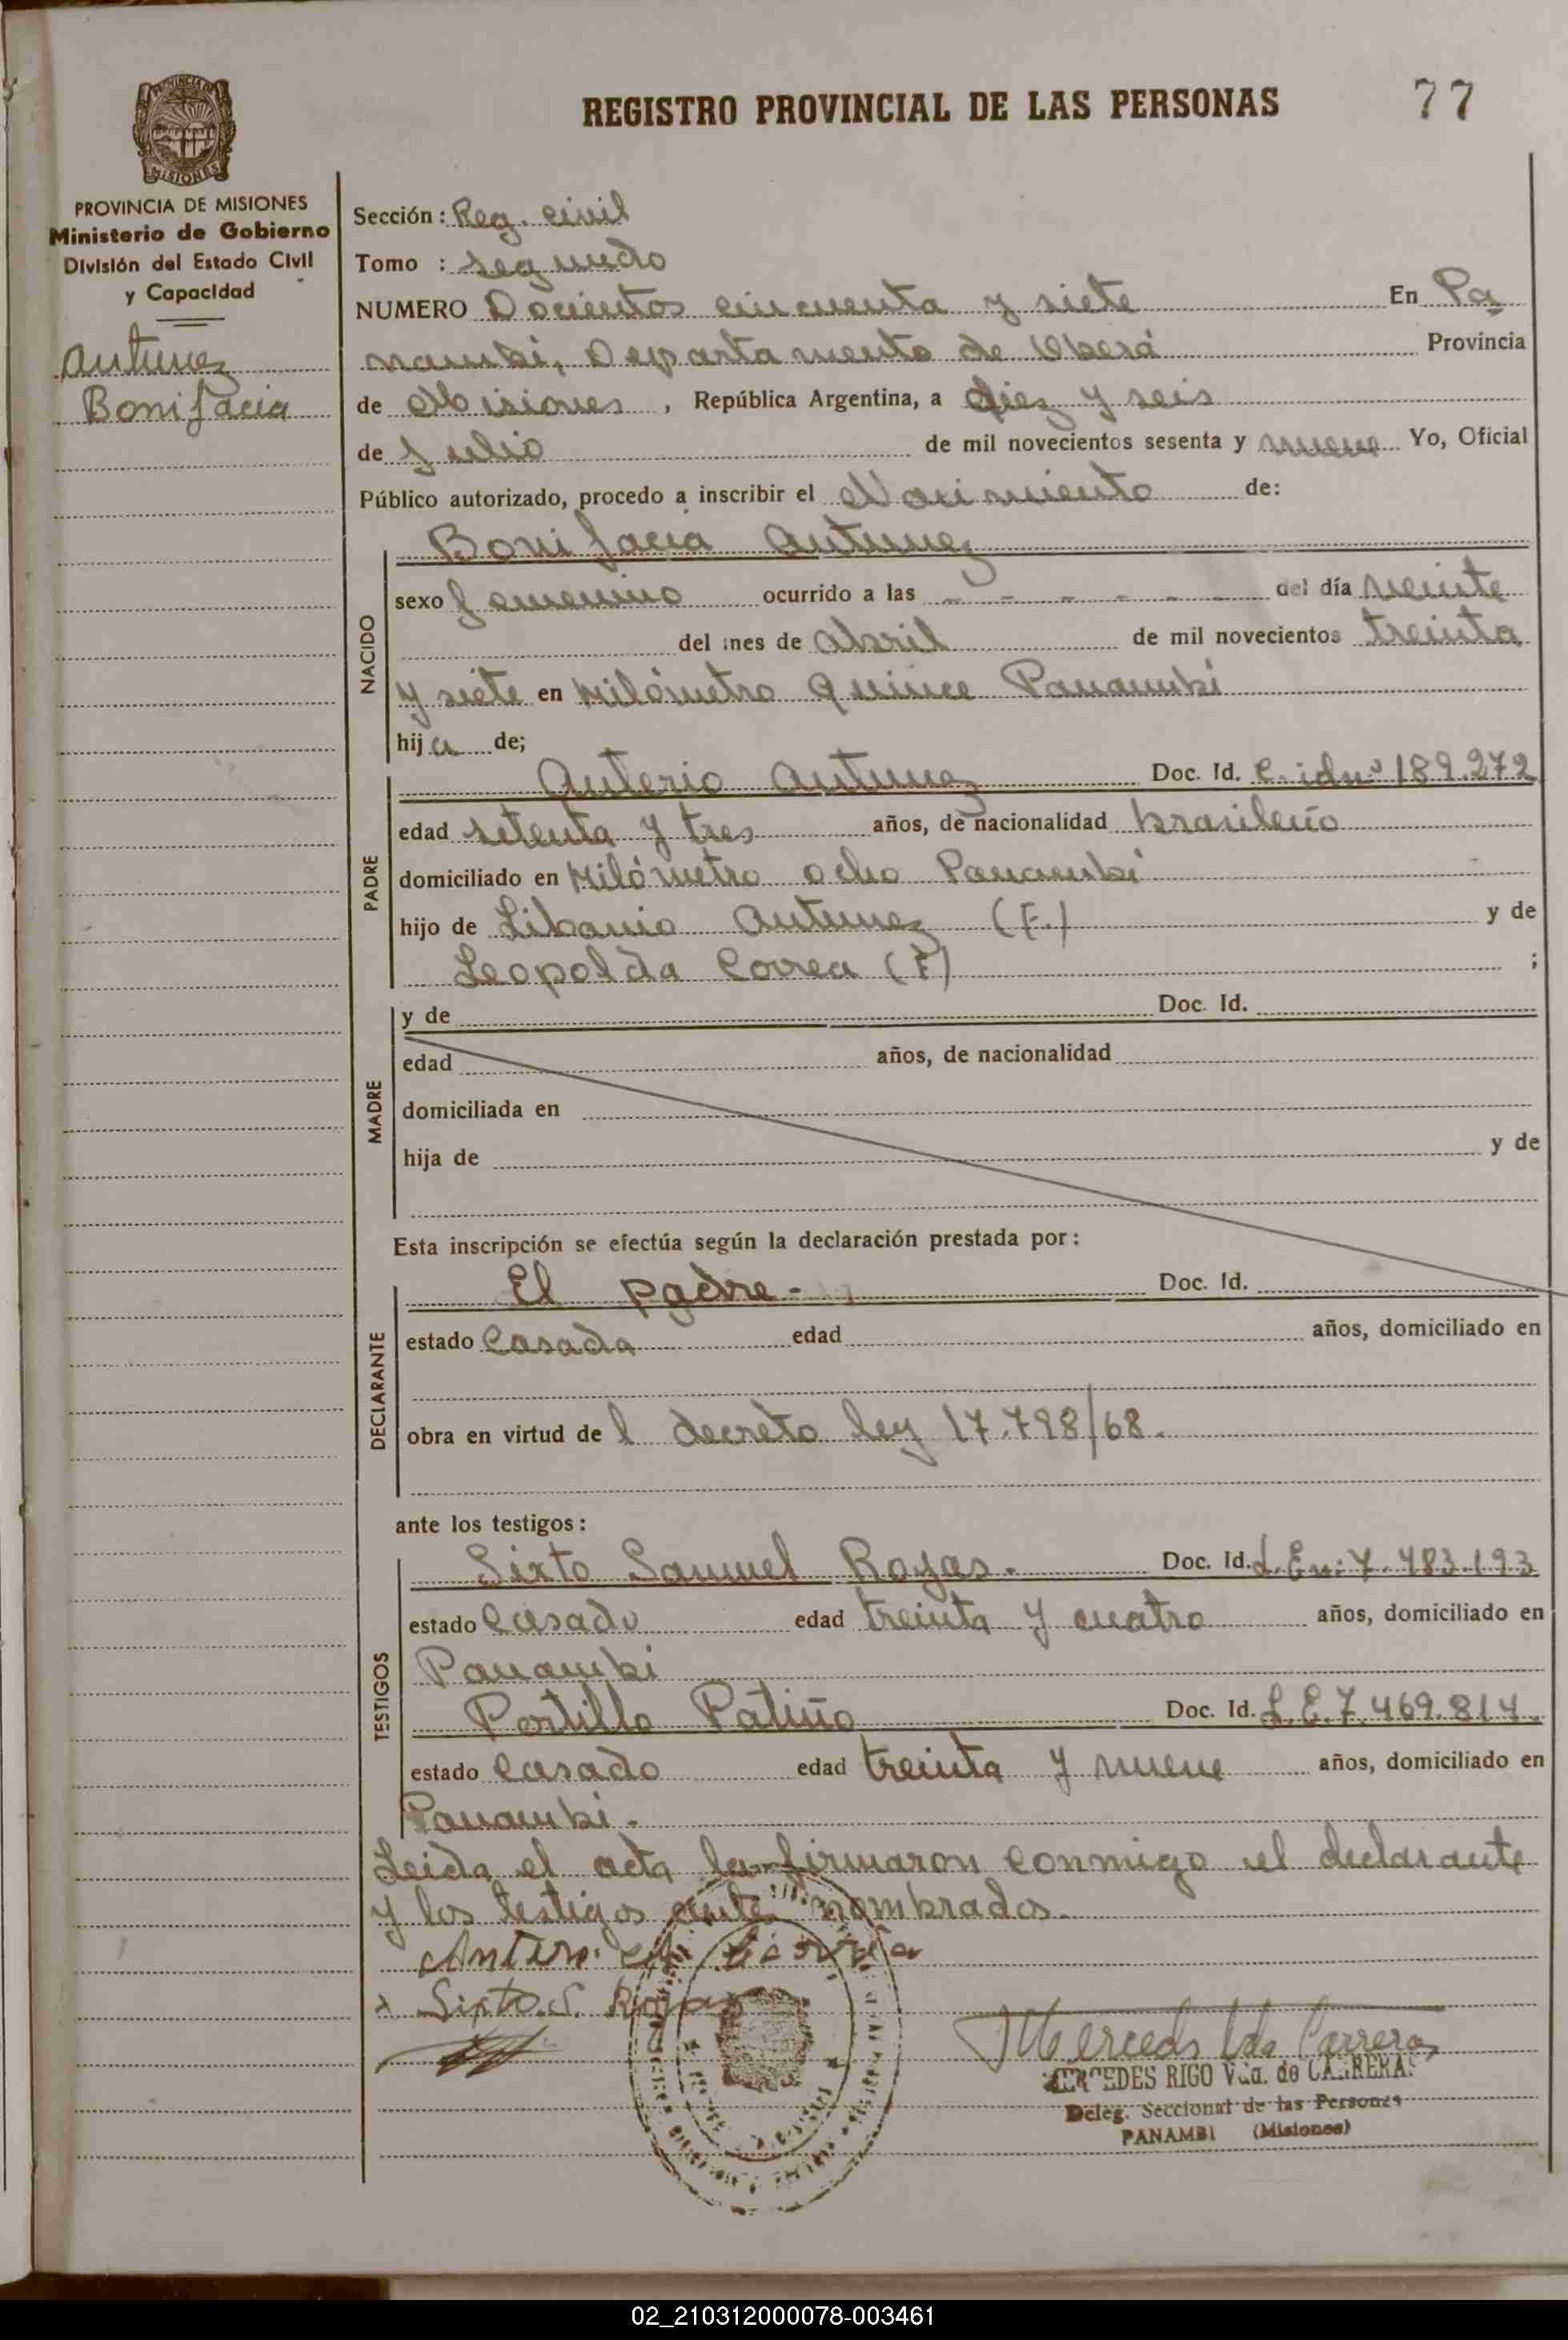 REGISTRO PROVINCIAL DE LAS PERSONAS
77
MISIONES
PROVINCIA DE MISIONES
Ministerio de Gobierno
División del Estado Civil
y Capacidad
Antunez
Bonifacia
Sección: Reg. civil
Tomo : segundo
NUMERO Docientos cincuenta y siete En Pa
nambí, Departamento de Oberá Provincia
de Misiones, República Argentina, a diez y seis
de Julio de mil novecientos sesenta y nueve Yo, Oficial
Público autorizado, procedo a inscribir el Nacimiento de:
Bonifacia Antunez
NACIDO
sexo femenino ocurrido a las - - - - - - del día veinte
del mes de Abril de mil novecientos treinta
y siete en Kilómetro quince Panambí
hija de;
Anterio Antunez Doc. Id. C. id nº 189.272
PADRE
edad setenta y tres años, de nacionalidad brasileño
domiciliado en Kilómetro ocho Panambí
hijo de Libanio Antunez (F.) y de
Leopolda Correa (F) ;
MADRE
y de Doc. Id.
edad años, de nacionalidad
domiciliada en
hija de y de
Esta inscripción se efectúa según la declaración prestada por:
El padre.- Doc. Id.
DECLARANTE
estado Casada edad años, domiciliado en
obra en virtud de l decreto ley 17.798/68.
ante los testigos:
Sixto Samuel Rojas. Doc. Id. L.En: 7.483.193
TESTIGOS
estado Casado edad treinta y cuatro años, domiciliado en
Panambi
Portillo Patiño Doc. Id. L.E.7.469.814.
estado Casado edad treinta y nueve años, domiciliado en
Panambi.
Leida el acta la firmaron conmigo el declarante
y los testigos ante nombrados.
Sixto.S. Rojas
Mercedes Vda Carreras
MERCEDES RIGO Vda. de CARRERAS
Deleg. Seccional de las Personas
PANAMBI (Misiones)
02_210312000078-003461